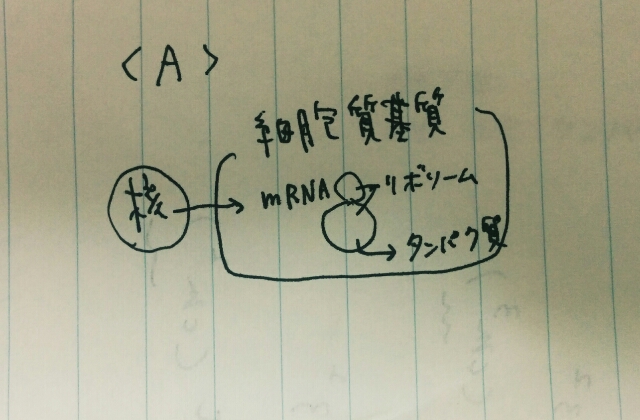 <A>
細胞質基質
核
mRNA
リボソーム
タンパク質